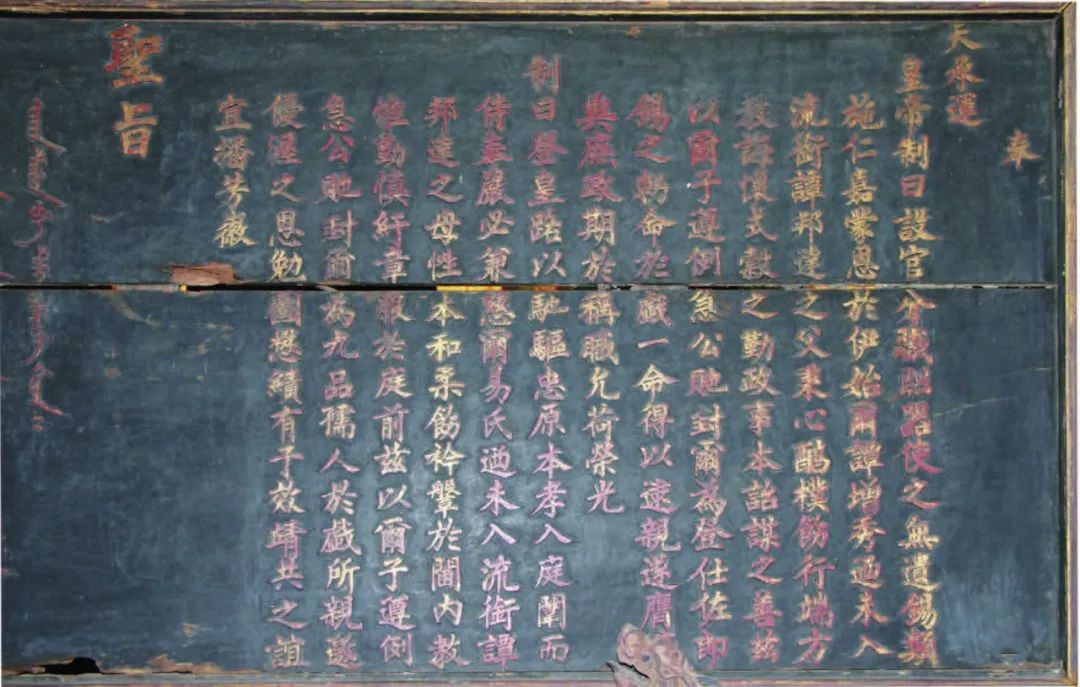 奉
天承運
皇帝制曰設官分職昭器使之無遺錫類
施仁嘉蒙恩於伊始爾譚增秀迺未入
流銜譚邦達之父秉心醕樸飭行端方
教諄懷式穀之勤政事本詒謀之善茲
以爾子遵例急公貤封爾為登仕佐郎
錫之勅命於戲一命得以逮親遂膺
與厥政期於稱職允荷榮光
制曰登皇路以馳驅忠原本孝入庭闈而
侍奉嚴必兼慈爾易氏迺未入流銜譚
邦達之母性本和柔飭衿鞶於閫內教
惟勤慎紆章服於庭前茲以爾子遵例
急公貤封爾為九品孺人於戲所親邀
優渥之恩勉圖懋績有子效靖共之誼
宜播芳徽
聖旨